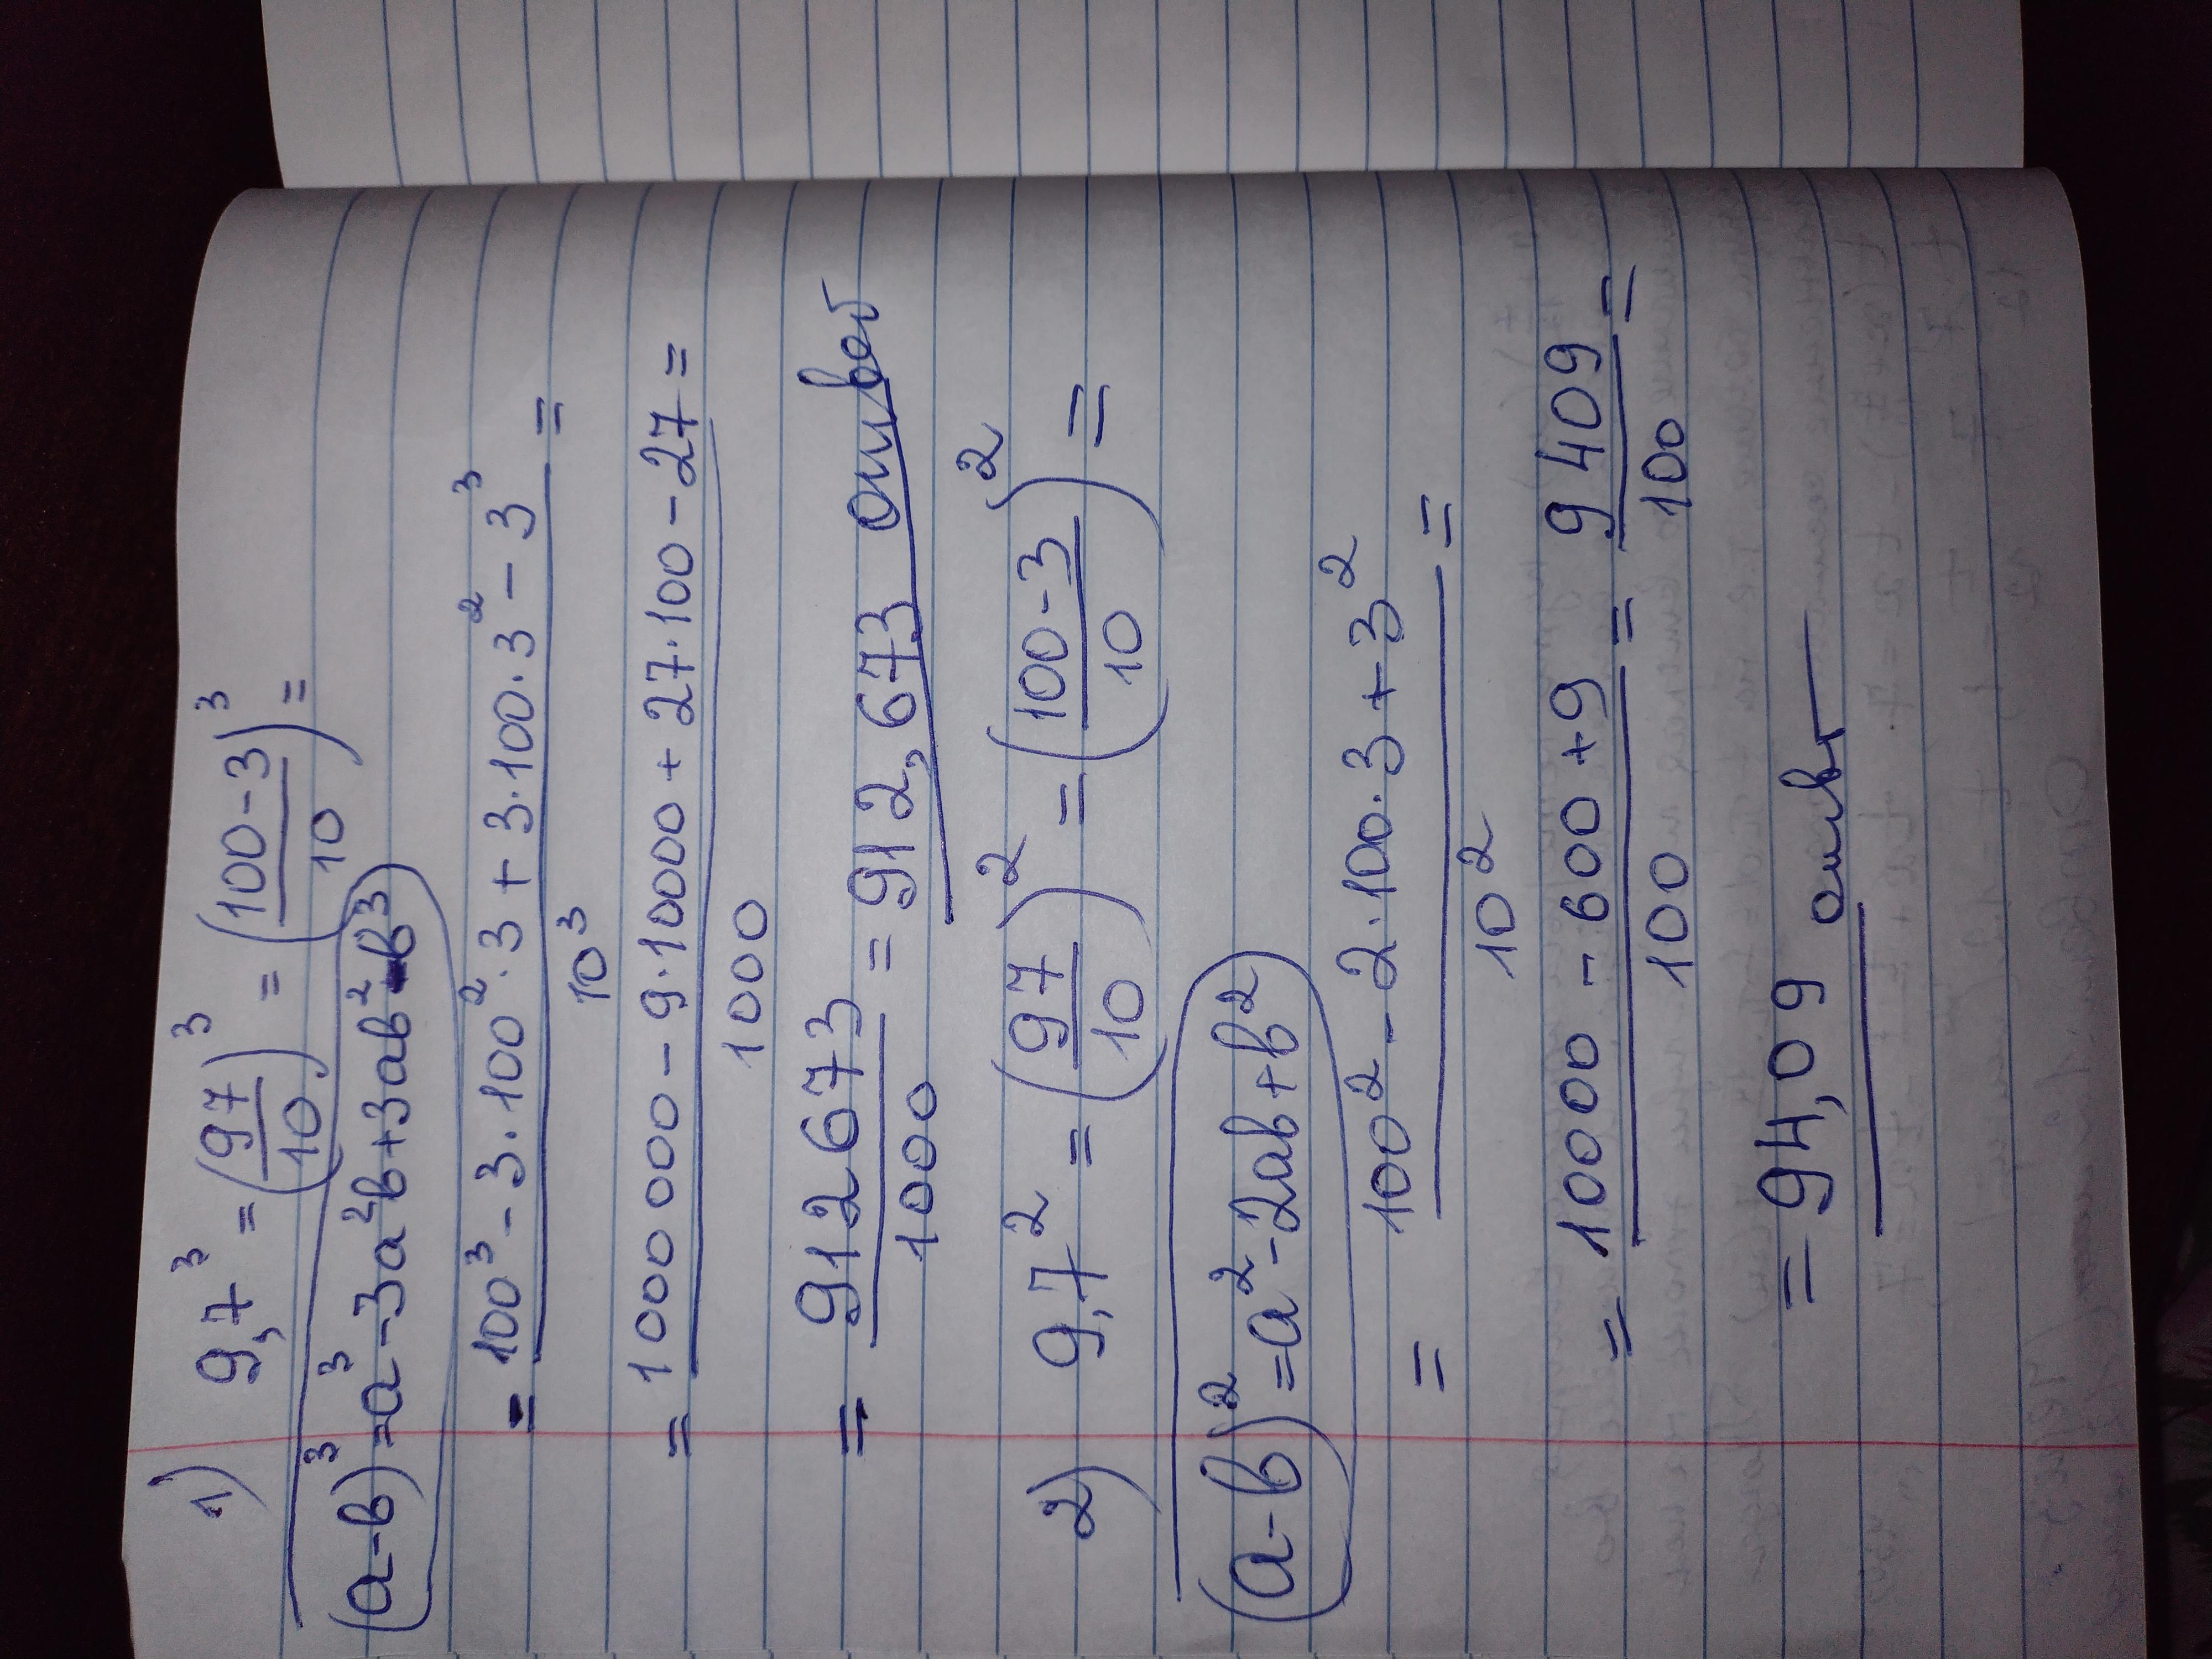 1) 9,7³ = (97/10)³ = ((100-3)/10)³ =
(a-b)³=a³-3a²b+3ab²-b³
= (100³-3·100²·3+3·100·3²-3³)/10³ =
= (1000000-9·10000+27·100-27)/1000 =
= 912673/1000 = 912,673 ответ
2) 9,7² = (97/10)² = ((100-3)/10)² =
(a-b)²=a²-2ab+b²
= (100²-2·100·3+3²)/10² =
= (10000-600+9)/100 = 9409/100 =
= 94,09 ответ